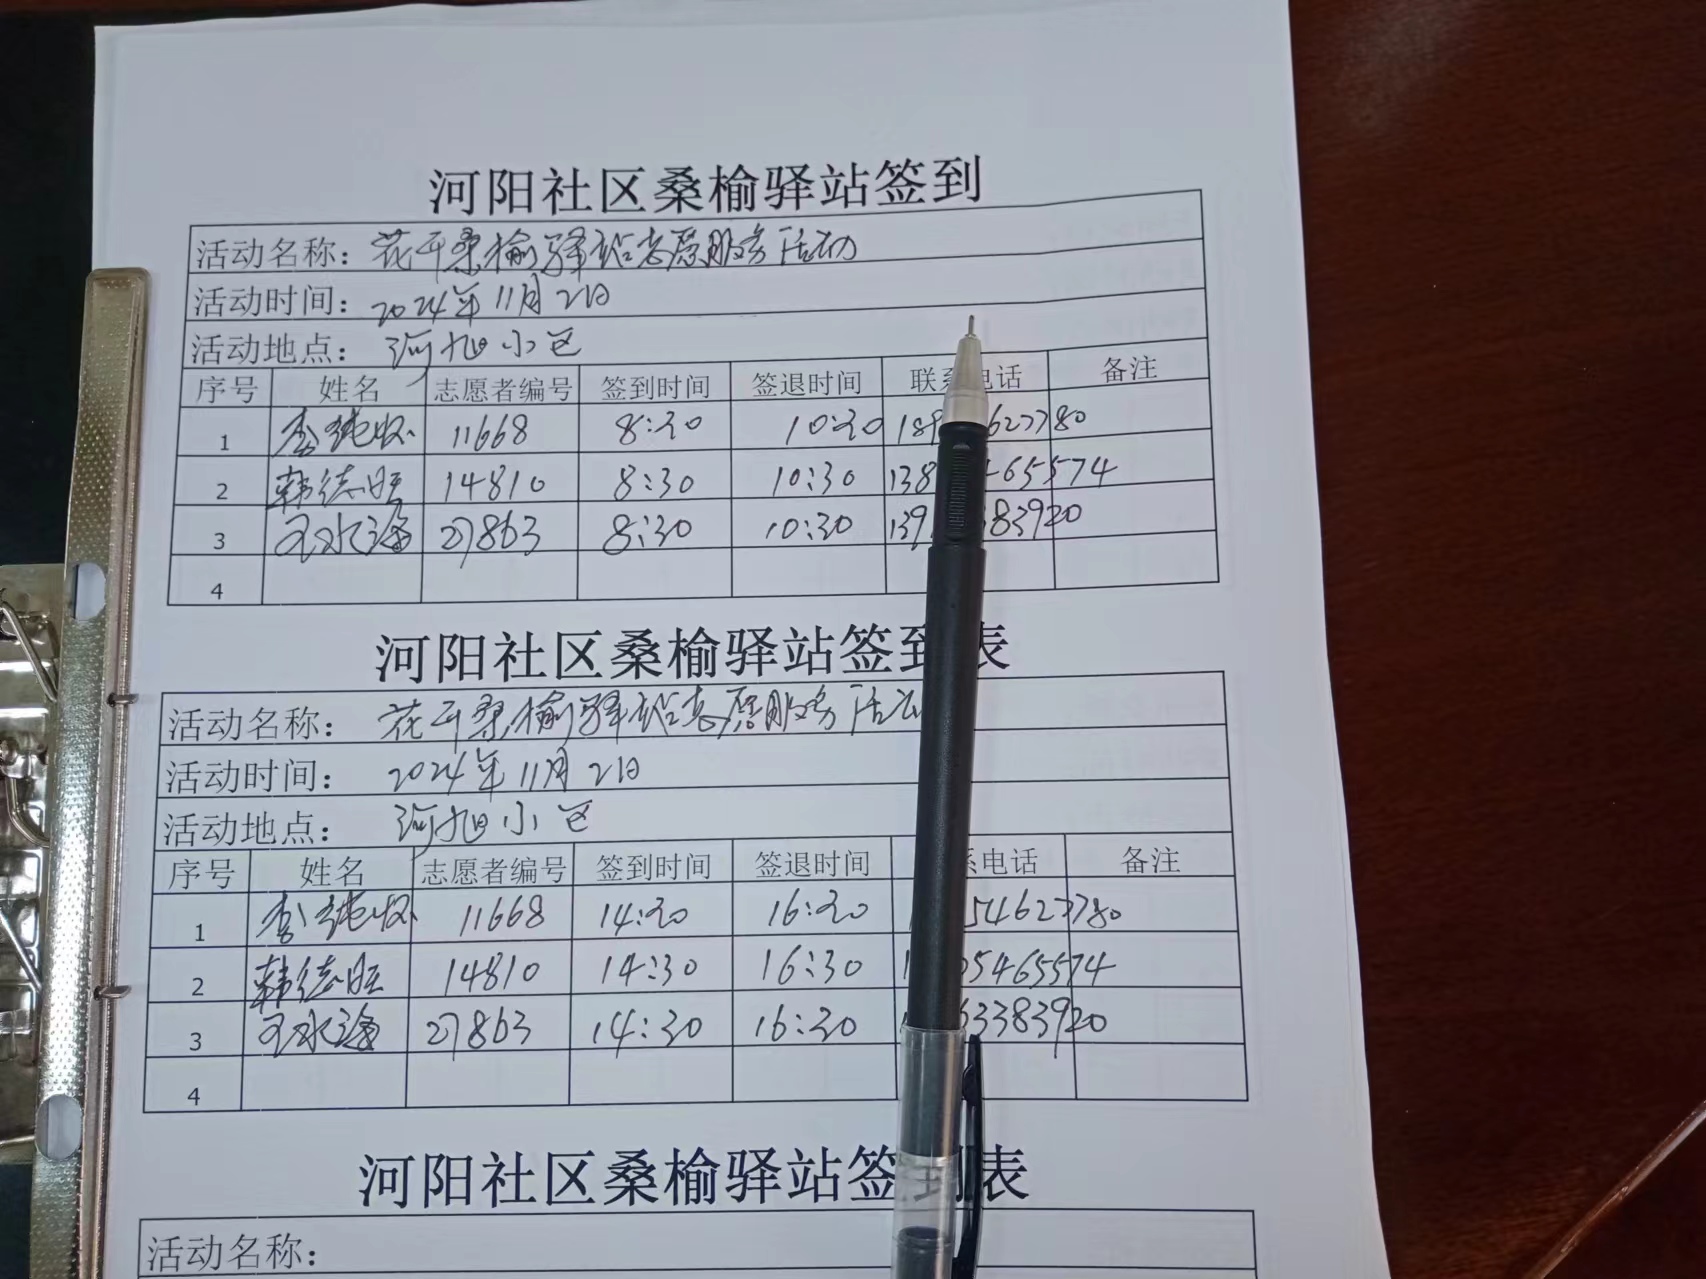 河阳社区桑榆驿站签到
活动名称：花开桑榆驿站志愿服务活动
活动时间：2024年11月2日
活动地点：河旭小区
序号 姓名 志愿者编号 签到时间 签退时间 联系电话 备注
1 李 11668 8:30 10:30 189 62778​0
2 韩德旺 14810 8:30 10:30 138 465574
3 王水海 27863 8:30 10:30 139 383920
4
河阳社区桑榆驿站签到表
活动名称：花开桑榆驿站志愿服务活动
活动时间：2024年11月2日
活动地点：河旭小区
序号 姓名 志愿者编号 签到时间 签退时间 系电话 备注
1 李 11668 14:30 16:30 1 54627780
2 韩德旺 14810 14:30 16:30 1 5465574
3 王水海 27863 14:30 16:30 63383920
4
河阳社区桑榆驿站签到表
活动名称：